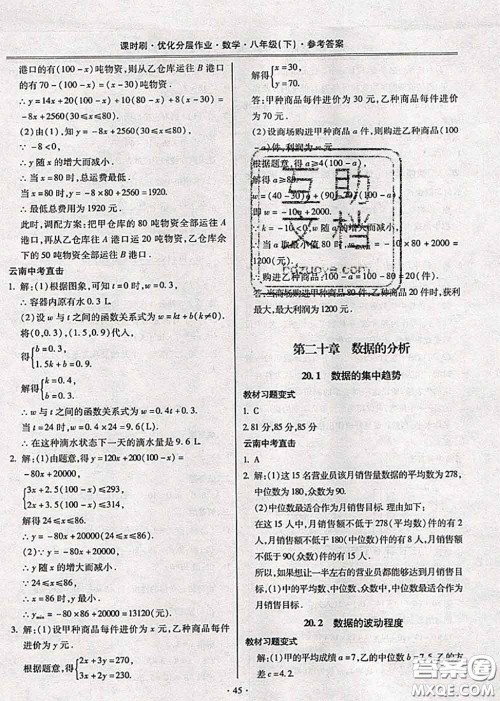 课时刷·优化分层作业·数学·八年级(下)·参考答案
港口的有(100-x)吨物资,则从乙仓库运往 B 港口的有 70-(100-x)=(x-30)吨物资.
∴y=14x+20(100-x)+10(80-x)+8(x-30)=
-8x+2560(30≤x≤80).
(2)由(1),知 y=-8x+2560(30≤x≤80).
∵-8<0,
∴y 随 x 的增大而减小.
∴当 x=80 时,y 最小.
当 x=80 时,y=-8×80+2560=1920.
∴最低总费用为 1920 元.
此时,调配方案:把甲仓库的 80 吨物资全部运往 A
港口,再从乙仓库运 20 吨物资到 A 港口,乙仓库余
下的 50 吨物资全部运往 B 港口.
云南中考直击
1. 解:(1)根据图象,可知 t=0 时,w=0.3,
∴容器内原有水 0.3 L.
(2)设 w 与 t 之间的函数关系式为 w=kt+b(k≠0).
将(0,0.3),(1.5,0.9)代入,
得 b=0.3,
1.5k+b=0.9.
解得 k=0.4,
b=0.3.
∴w 与 t 之间的函数关系式为 w=0.4t+0.3.
当 t=24 时,w=0.4×24=9.6(L).
∴在这种滴水状态下一天的滴水量是 9.6 L.
2. 解:(1)根据题意,得 y=120x+200(100-x)=
-80x+20000,
3x+2.5(100-x)≤293,
2x+3.5(100-x)≤314,
解得 24≤x≤86.
∴y=-80x+20000(24≤x≤86).
(2)∵-80<0,
∴y 随 x 的增大而减小.
∴x=86 时,y 最小.
∴y min=-80×86+20000=13120(元).
3. 解:(1)设甲种商品每件进价为 x 元,乙种商品每件
进价为 y 元.
根据题意,得 2x+3y=270,
3x+2y=230.
解得 x=30,
y=70.
答:甲种商品每件进价为 30 元,乙种商品每件进价
为 70 元.
(2)设商场购进甲种商品 a 件,则购进乙种商品(100
-a)件,利润为 w 元.
根据题意,得 a≥4(100-a),
解得 a≥80.
w=(40-30)a+(90-70)(100-a),
即 w=-10a+2000.
∵-10<0,
∴w 随 a 的增大而减小.
∴当 a 取最小值 80 时,w最大=-10×80+2000=
1200(元).
∴购进乙种商品:100-a=100-80=20(件).
答:当商场购进甲种商品 80 件,乙种商品 20 件时,获利
最大,最大利润为 1200 元.
第二十章 数据的分析
20.1 数据的集中趋势
教材习题变式
1. C
2. 81 分,85 分,85 分
云南中考直击
1. A
2. 解:(1)这 15 名营业员该月销售量数据的平均数为 278,
中位数为 180,众数为 90.
(2)中位数最适合作为月销售目标.理由如下:
在这 15 人中,月销售额不低于 278(平均数)件的有 2
人,月销售额不低于 180(中位数)件的有 8 人,月销售额
不低于 90(众数)件的有 15 人.
所以,如果想让一半左右的营业员都能够达到月销售目
标,(1)中的平均数、中位数、众数中,中位数最适合作为
月销售目标.
20.2 数据的波动程度
教材习题变式
1. 解:(1)甲的平均成绩 a=7,乙的中位数 b=7.5,乙的方
差 c=4.2.
·45·
互助文档
hdzuoye.com
答案圈
MXQE.COM